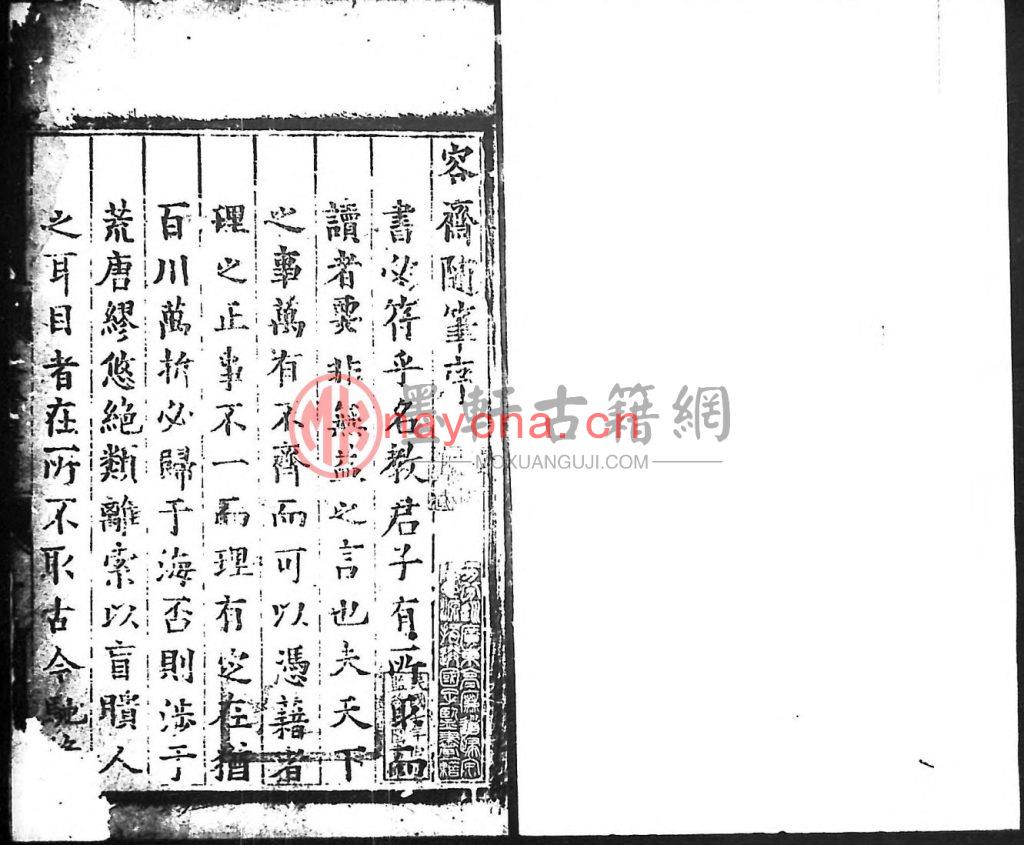 容齋隨筆序
書必符乎名教君子有所取而
讀者要非無益之言也夫天下
之事萬有不齊而可以憑藉者
理之正事不一而理有定在猶
百川萬折必歸于海否則涉于
荒唐繆悠絕類離索以盲聵人
之耳目者在所不取古今馳
墨軒古籍網
nayona.cn
MOXUANGUJI.COM